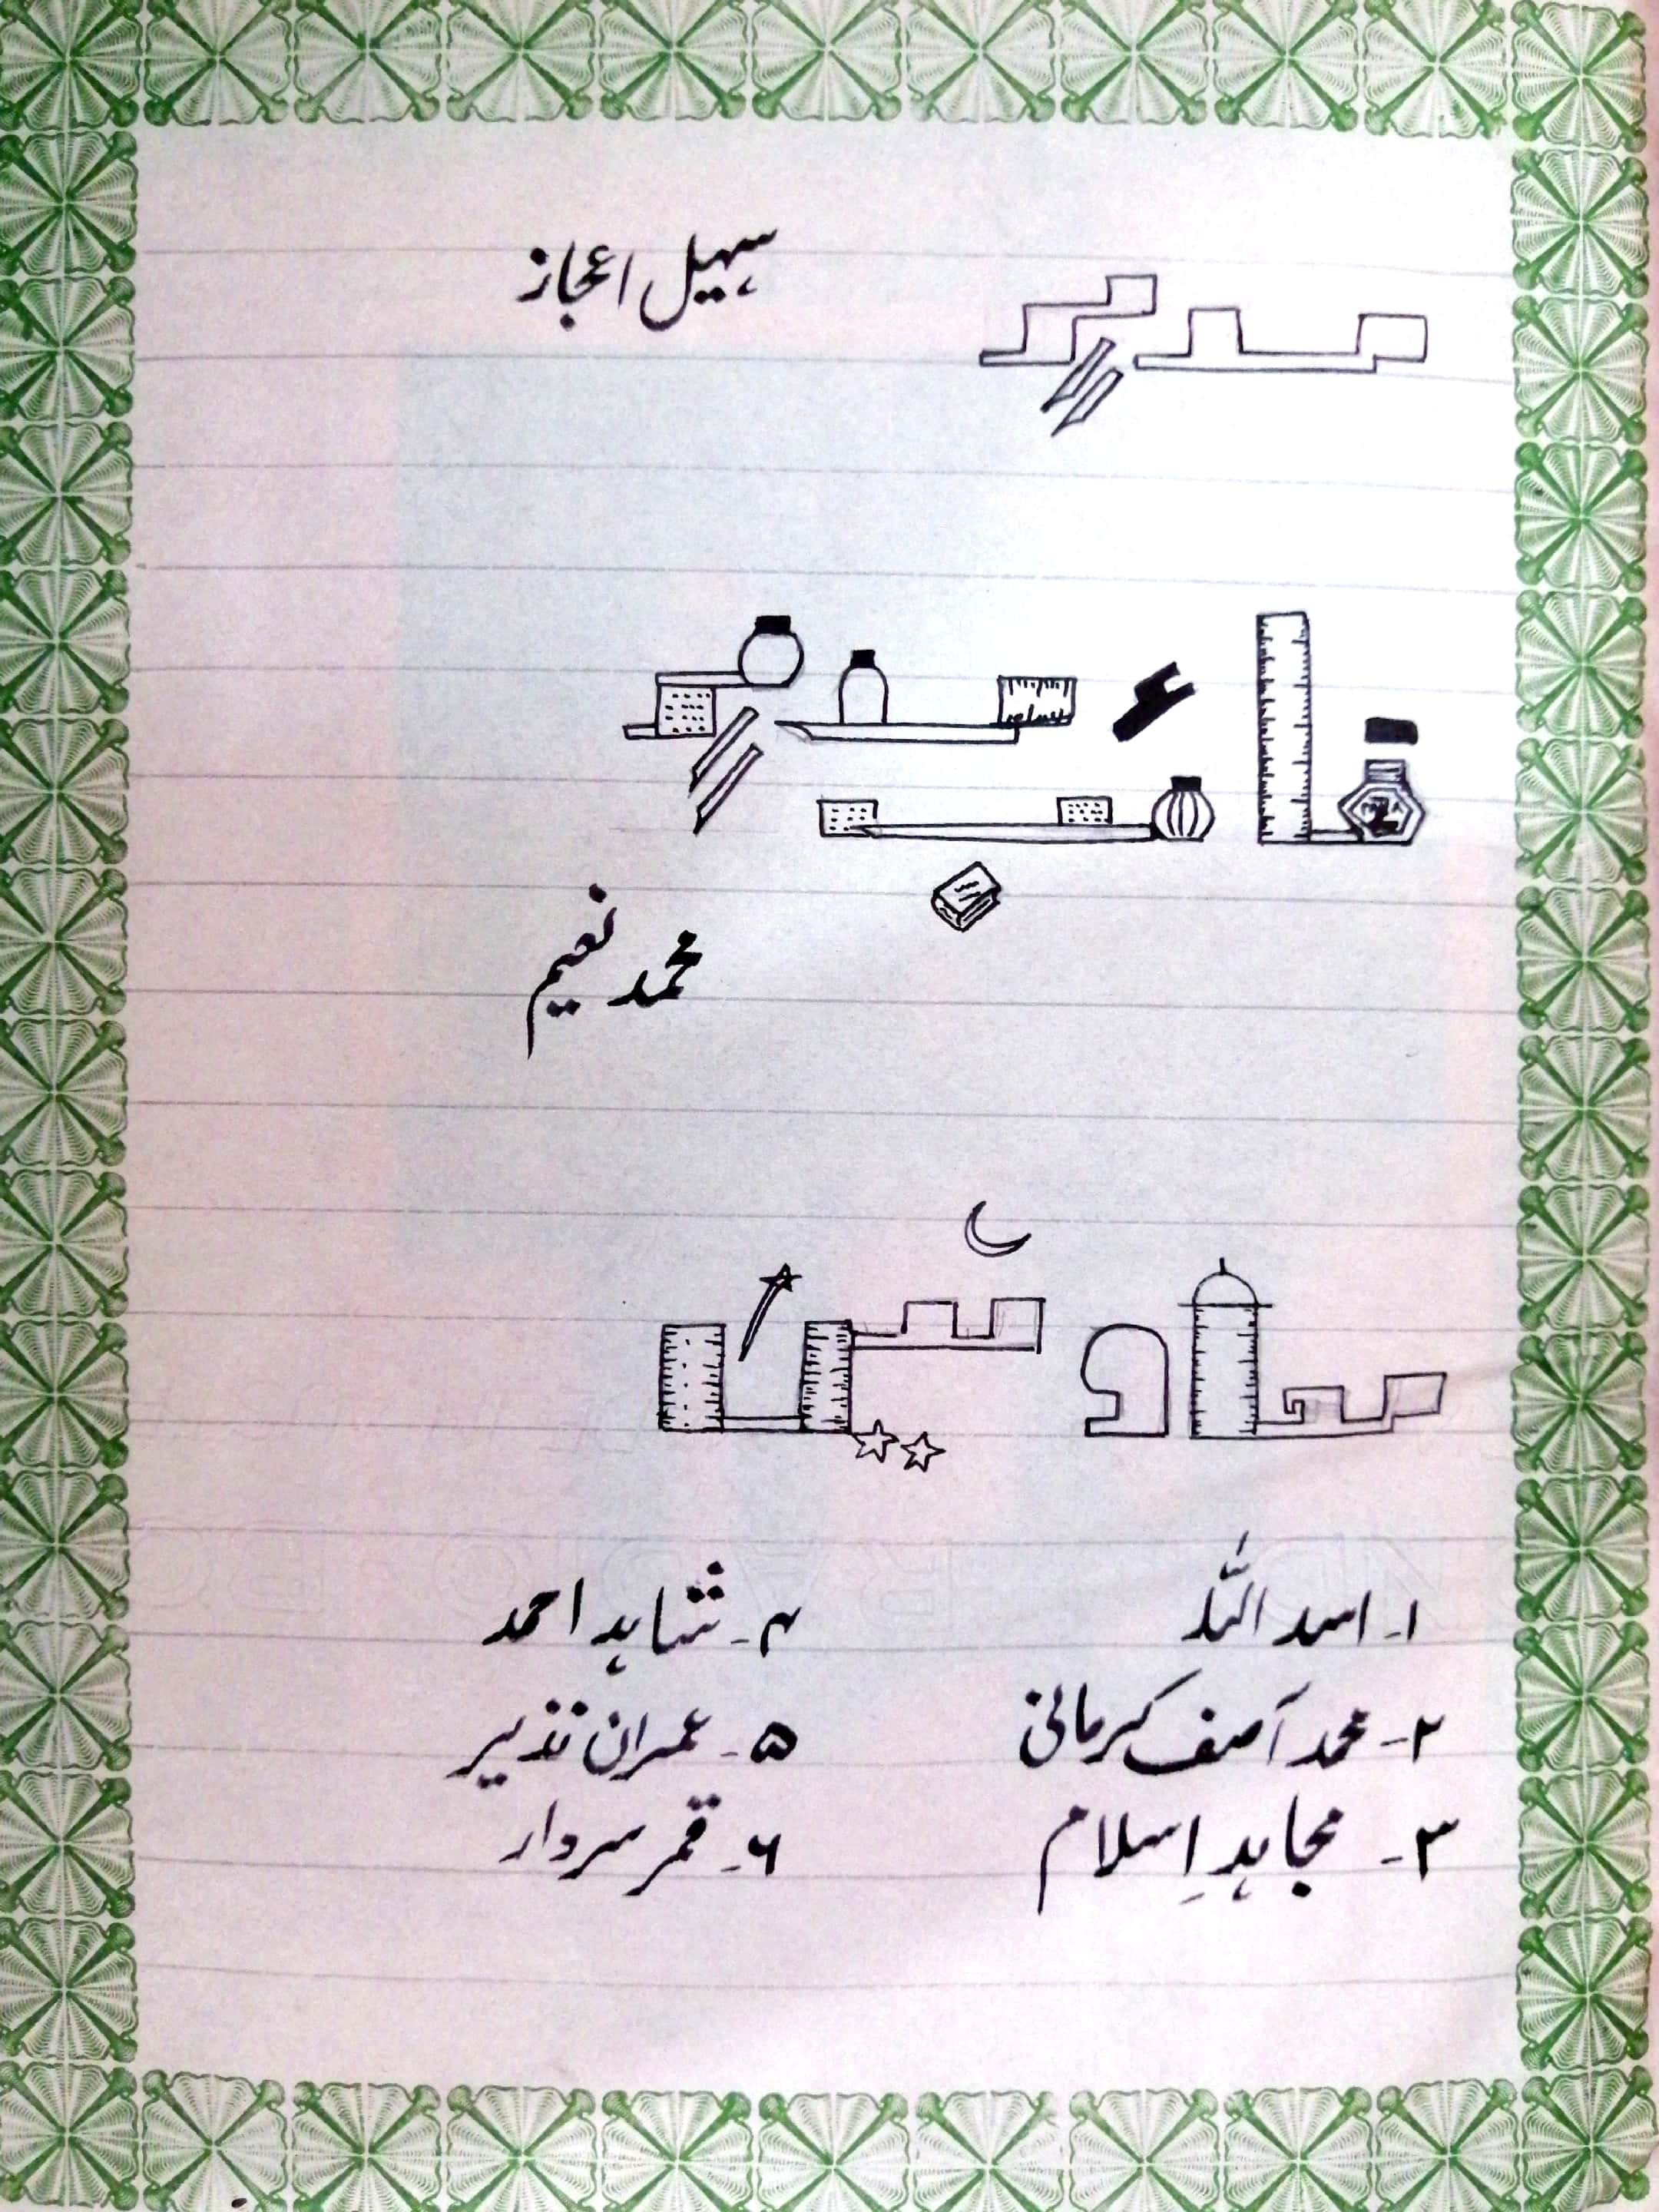 مدیر
سہیل اعجاز
نائب مدیر
محمد نعیم
معاونین
۱۔ اسد اللہ
۲۔ محمد آصف کرمانی
۳۔ مجاہدِ اسلام
۴۔ شاہد احمد
۵۔ عمران نذیر
۶۔ قمر سردار